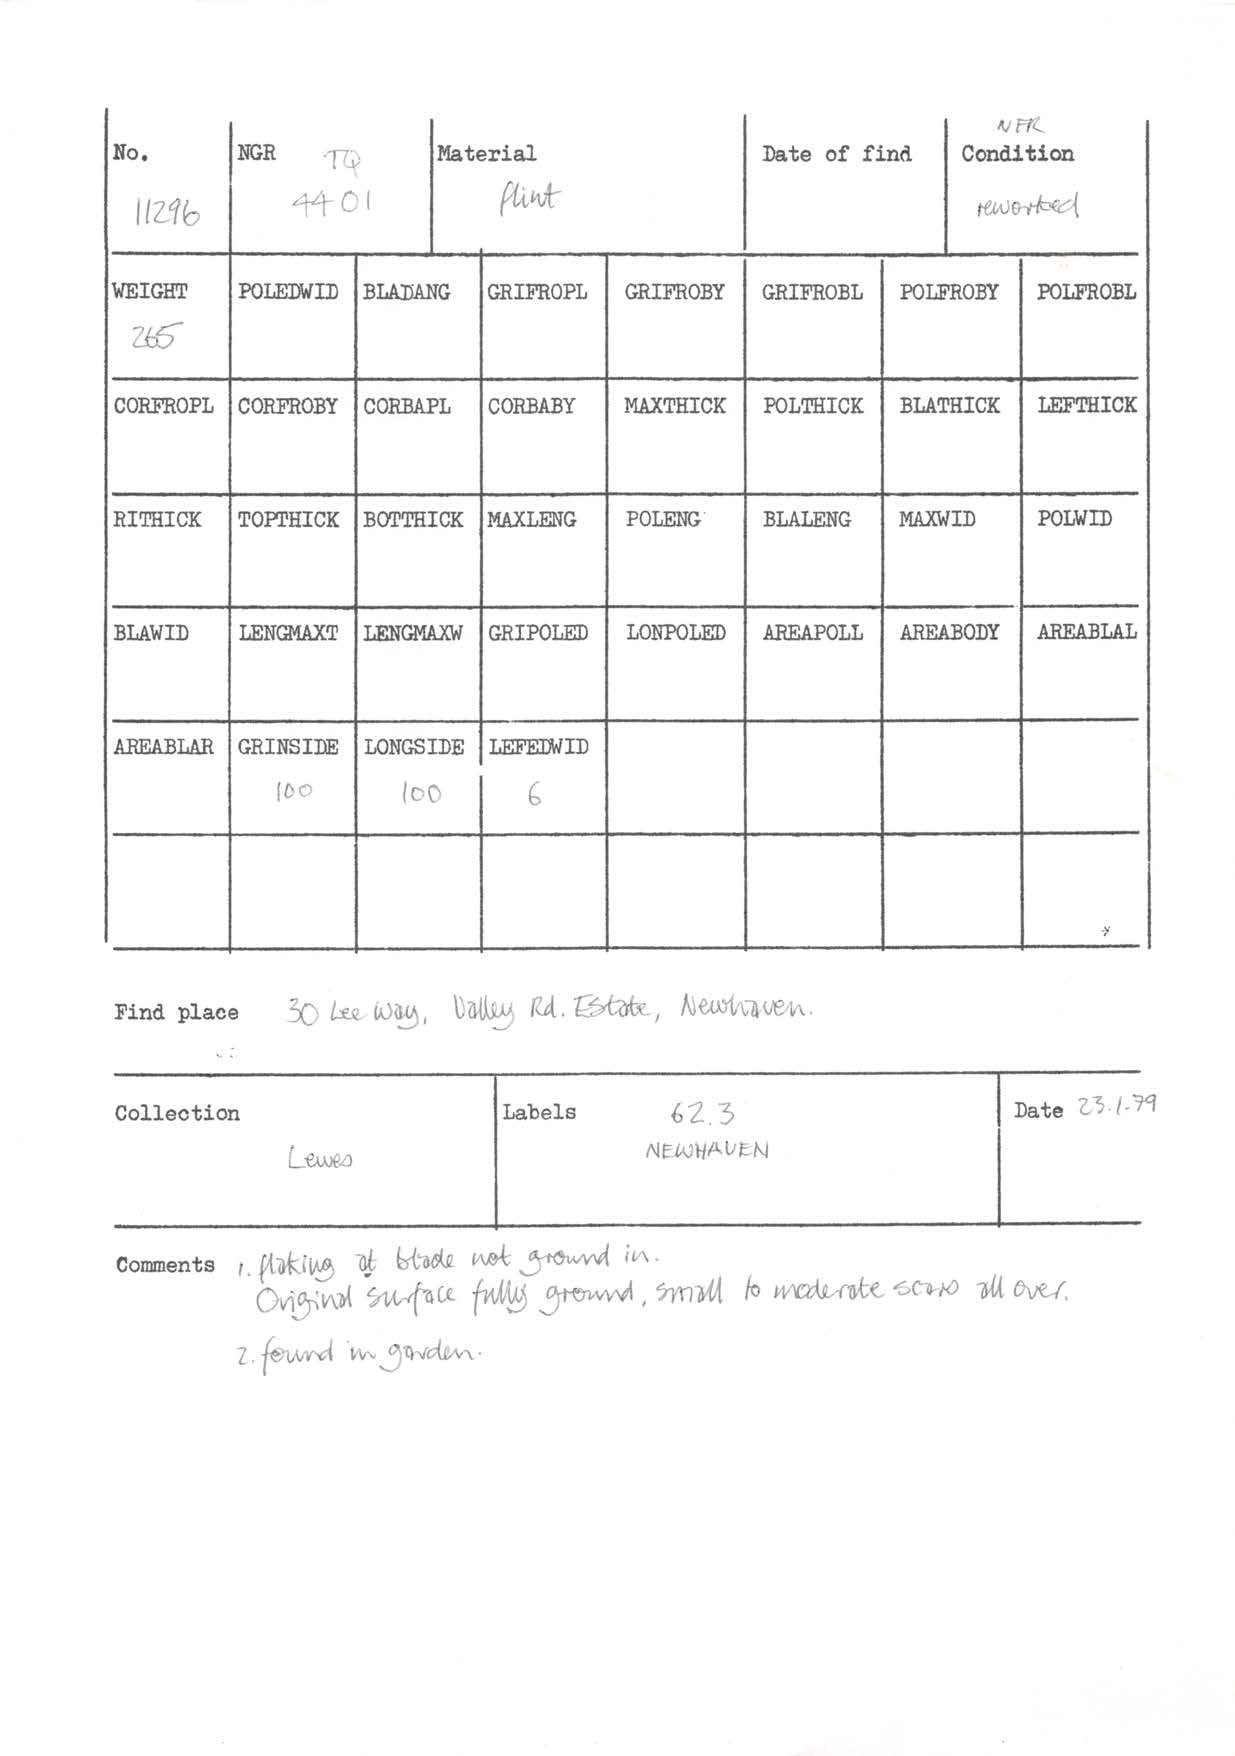 NFR
No. NGR TQ Material Date of find Condition
11296 4401 flint reworked
WEIGHT POLEDWID BLADANG GRIFROPL GRIFROBY GRIFROBL POLFROBY POLFROBL
265
CORFROPL CORFROBY CORBAPL CORBABY MAXTHICK POLTHICK BLATHICK LEFTHICK
RITHICK TOPTHICK BOTTHICK MAXLENG POLENG BLALENG MAXWID POLWID
BLAWID LENGMAXT LENGMAXW GRIPOLED LONPOLED AREAPOLL AREABODY AREABLAL
AREABLAR GRINSIDE LONGSIDE LEFEDWID
100 100 6
Find place 30 Lee Way, Valley Rd. Estate, Newhaven.
Collection Labels 62.3 Date 23.1.79
Lewes NEWHAVEN
Comments 1. flaking at blade not ground in.
Original surface fully ground, small to moderate scars all over.
2. found in garden.